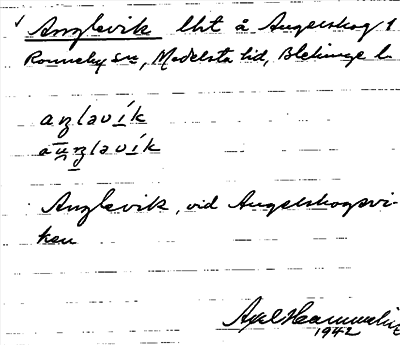 ✓ Anglevik lht å Angelskog 1
Ronneby sn, Medelsta hd, Blekinge l.
aŋləvík
aŋləvík
Anglevik, vid Angelskogsvi-
ken
Axel
1942